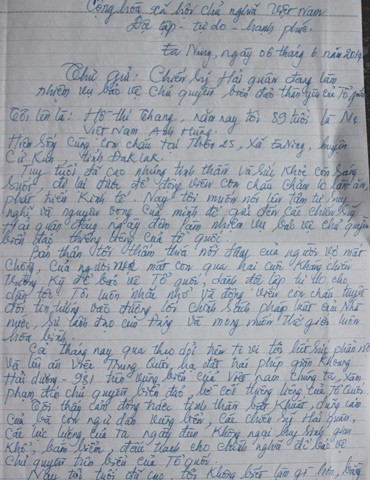 Cộng hòa xã hội chủ nghĩa Việt Nam
Độc lập - tự do - hạnh phúc.
Ea Ning, ngày 06 tháng 6 năm 2014
Thư gửi: Chiến sỹ Hải quân đang làm
nhiệm vụ bảo vệ chủ quyền biển đảo thân yêu của Tổ quốc
Tôi tên là: Hồ thị Thang, năm nay tôi 89 tuổi là Mẹ
Việt Nam Anh Hùng.
Hiện sống cùng con cháu tại Thôn 25, Xã EaNing, huyện
Cư Kuin tỉnh ĐakLak.
Tuy tuổi đã cao nhưng tinh thần và sức khỏe còn sáng
suốt, để động viên con cháu chăm lo làm ăn,
phát triển Kinh tế. Nay tôi muốn nói lên tâm tư suy
nghĩ và nguyện vọng của mình để gửi đến các chiến sỹ
Hải quân đang ngày đêm làm nhiệm vụ bảo vệ chủ quyền
biển đảo thiêng liêng của tổ quốc.
Bản thân tôi thấm thía nỗi đau của người vợ mất
chồng, của người mẹ mất con qua hai cuộc Kháng chiến
trường kỳ để bảo vệ Tổ quốc, dành độc lập tự do cho
dân tộc. Tôi luôn nhắc nhở và động viên con cháu tuyệt
đối tin tưởng vào đường lối chính sách pháp luật của Nhà
nước, sự lãnh đạo của Đảng và mong muốn thế giới luôn
hòa bình.
Cả tháng nay qua theo dõi trên ti vi tôi hết sức phẫn nộ
và lên án việc Trung Quốc hạ đặt trái phép giàn khoan
Hải dương - 981 trên vùng biển của Việt nam chúng ta, xâm
phạm đến chủ quyền biển đảo của Tổ Quốc.
Tôi thầm cảm động trước tinh thần bất khuất, dũng cảm
của bà con ngư dân vùng biển, các chiến sỹ Hải quân,
các lực lượng của ta ngày đêm không ngại hy sinh gian
khổ, bám biển, đấu tranh cho chính nghĩa để bảo vệ
chủ quyền trên biển của Tổ quốc.
Nay tôi tuổi đã cao, tôi không biết làm gì hơn, bằng